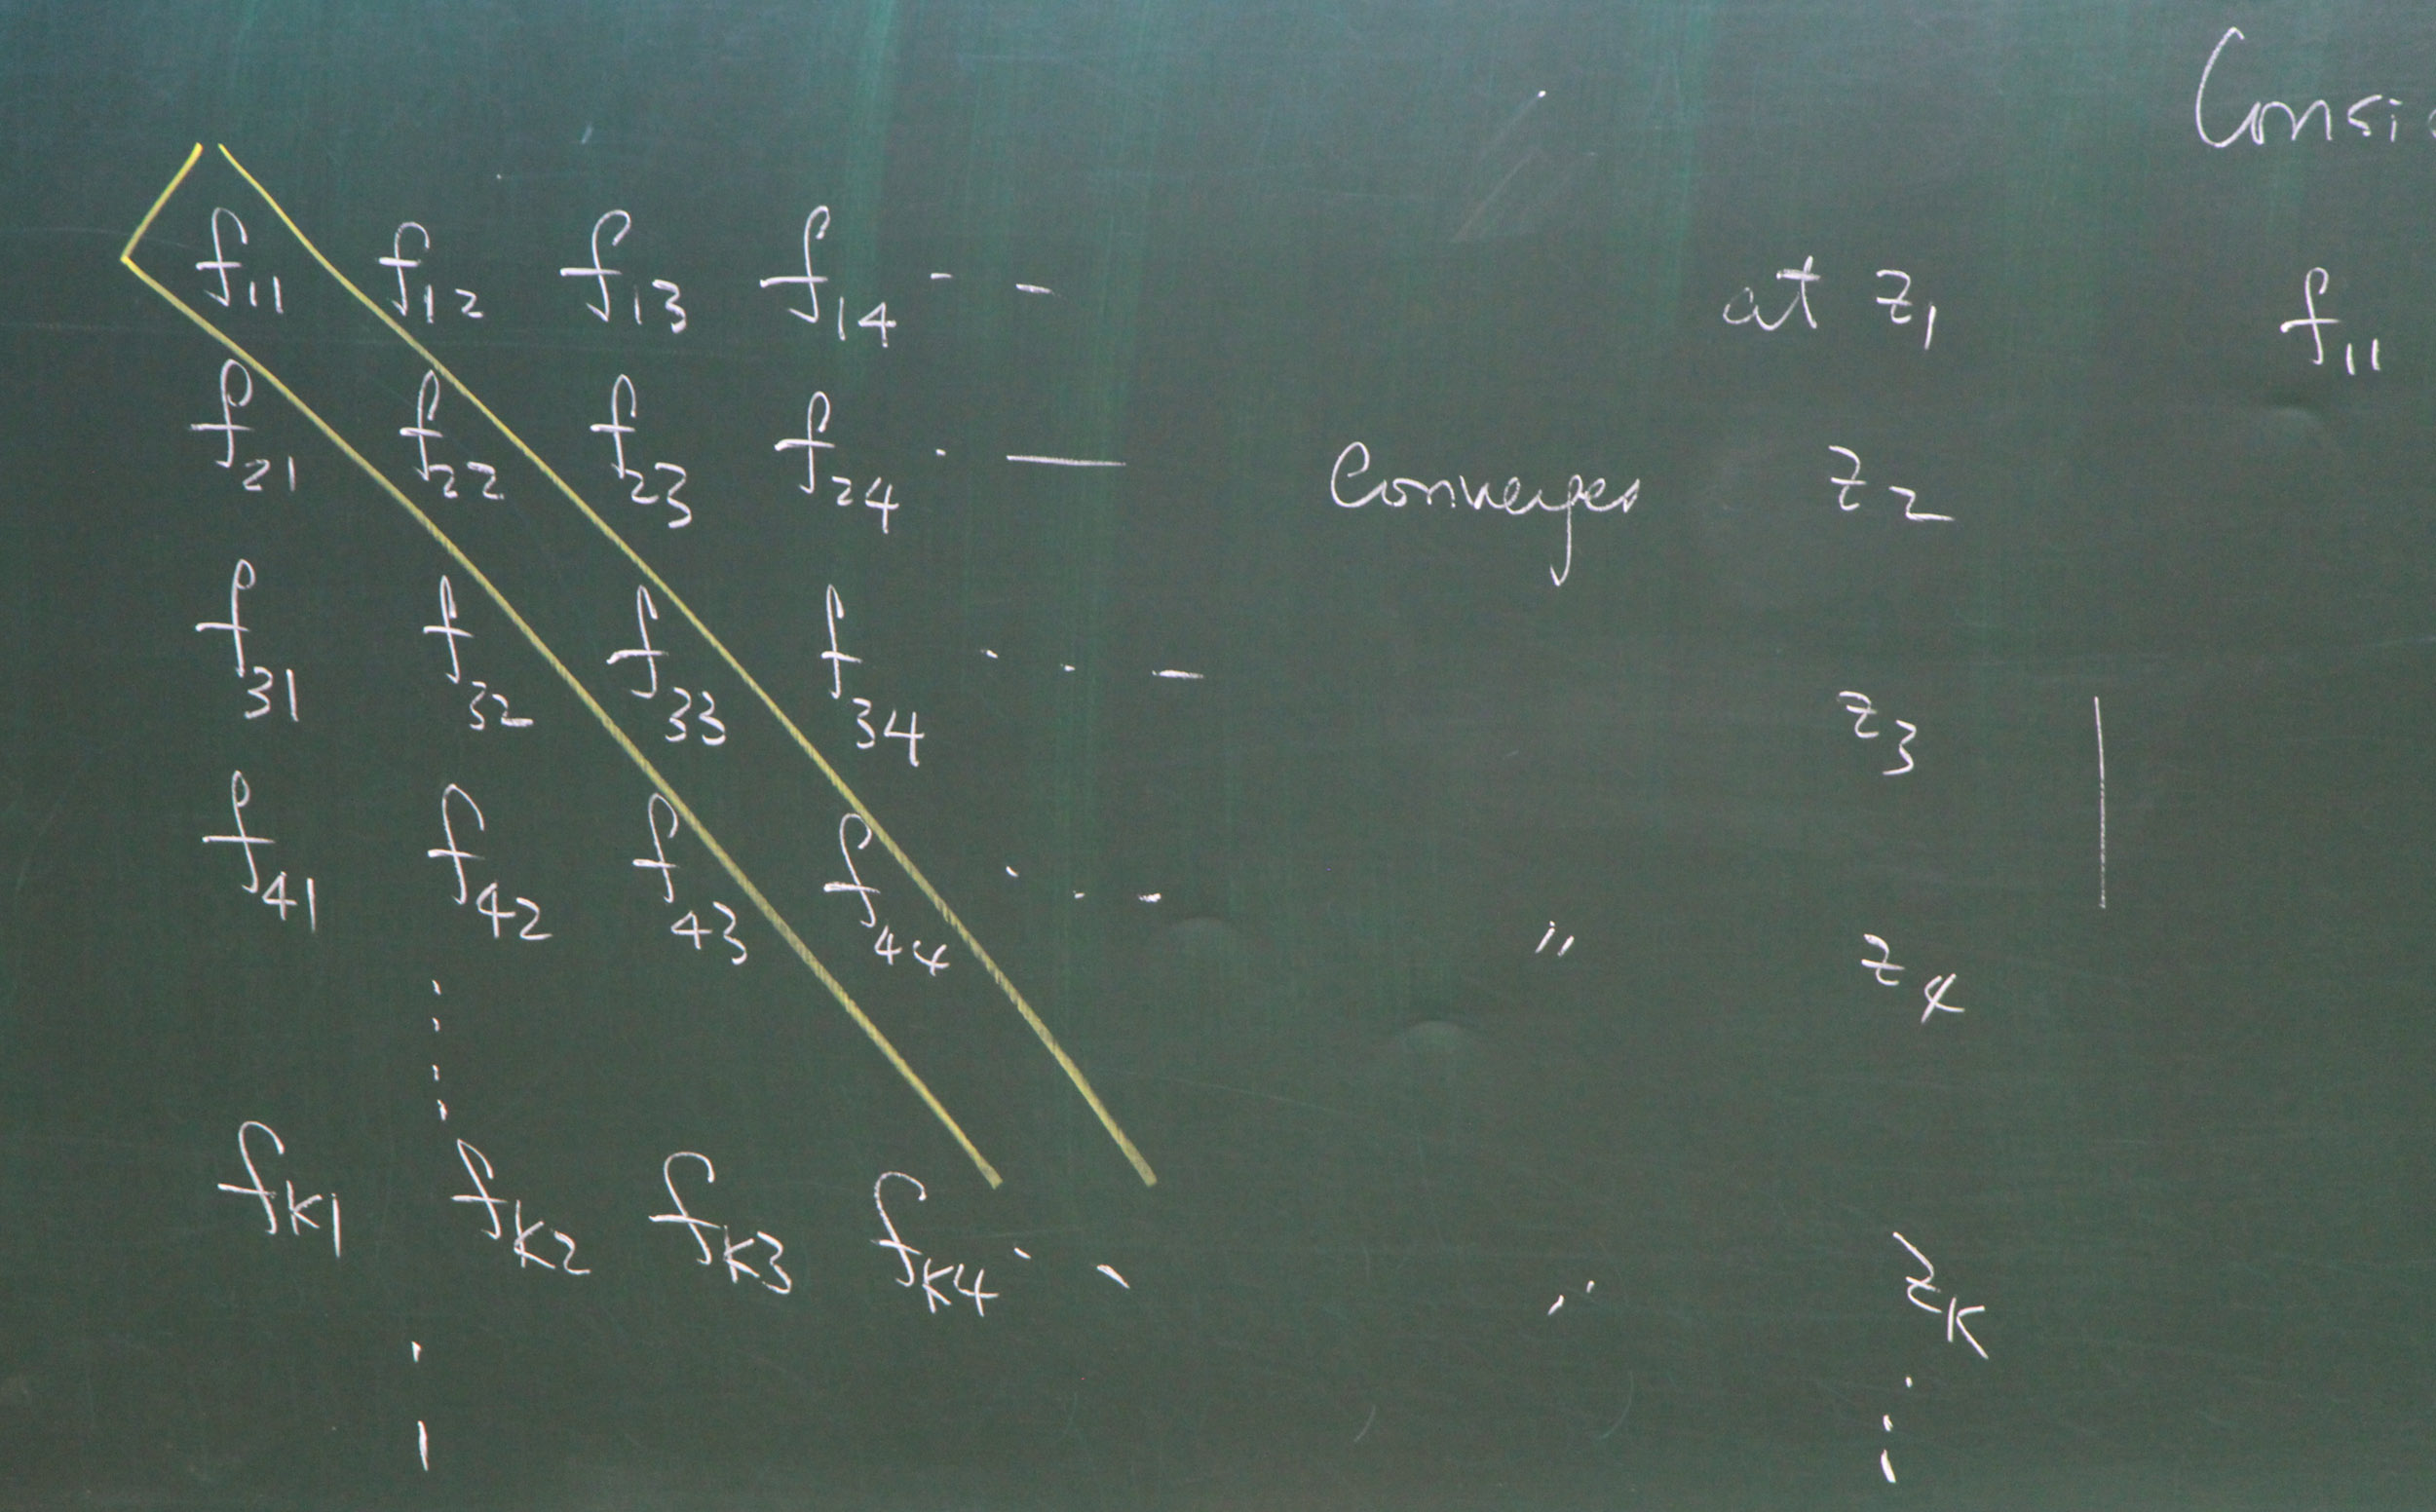 Consi
f11 f12 f13 f14 - - at z1 f11
f21 f22 f23 f24 · — Converges z2
f31 f32 f33 f34 · · - z3
f41 f42 f43 f44 · · - " z4
fK1 fK2 fK3 fK4 · · " zK